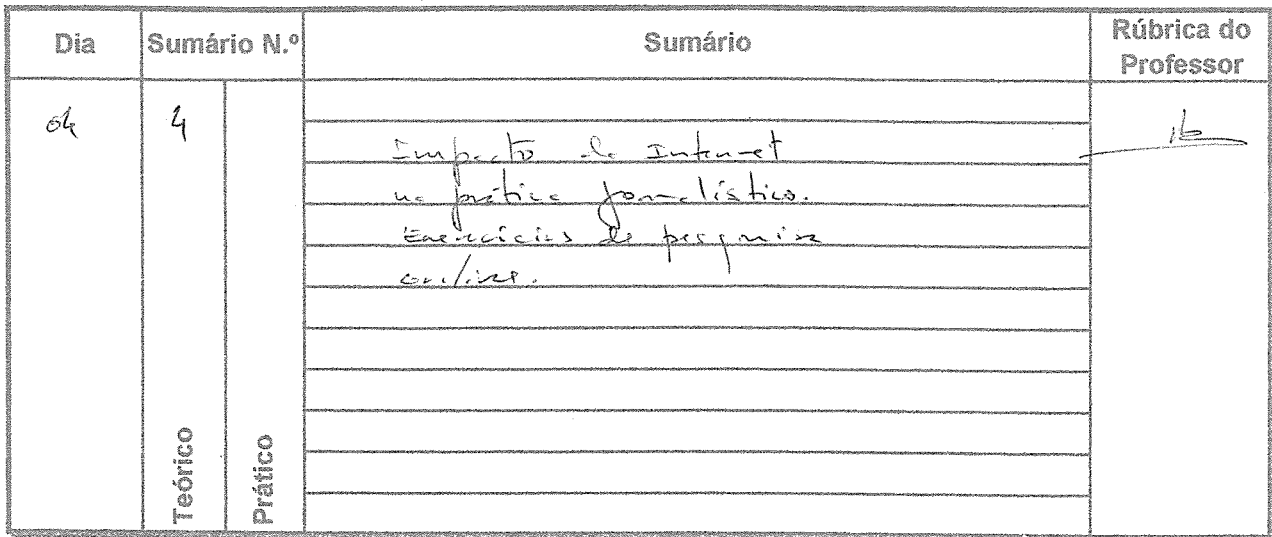 Dia Sumário N.º Sumário Rúbrica do Professor
04 4
Impacto da Internet
na prática jornalística.
Exercícios de pesquisa
online.
Teórico Prático